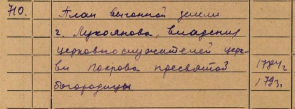 710. План выгонной земли
г. Лукоянова, владения
церковнослужителей церк-
ви покрова пресвятой 1784г.
богородицы 1793г.